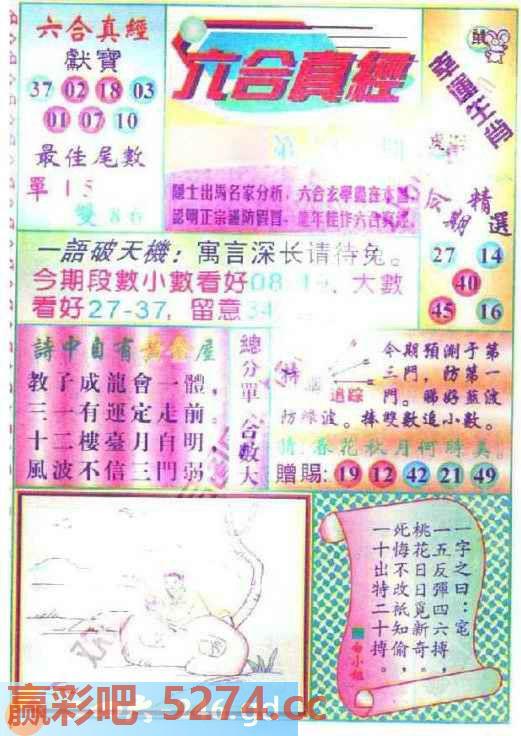 六合真經
獻寶
37 02 18 03
01 07 10
最佳尾數
單 1 5
雙 8 6
六合真經
鼠
幸運生肖
隱士出馬名家分析，六合玄學盡在本
認明正宗謹防假冒，龍年佳作六合真經
精選
27 14
40
45 16
一語破天機：寓言深长请待兔。
今期段數小數看好08-1 、大數
看好27-37，留意34
詩中自有黃金屋
教子成龍會一體，
三一有運定走前。
十二樓臺月自明
風波不信三門弱
總分單 合數大
特 追踪
今期預測于第
三門，防第一
門。睇好藍波
防綠波。捧雙數追小數。
猜：春花秋月何時美
贈賜：19 12 42 21 49
一字之曰：
一五反彈四六搏，
桃花日日覓新奇，
死悔不改祇知偷，
一十出特二十搏。
白小姐
赢彩吧 5274.cc
246.gd